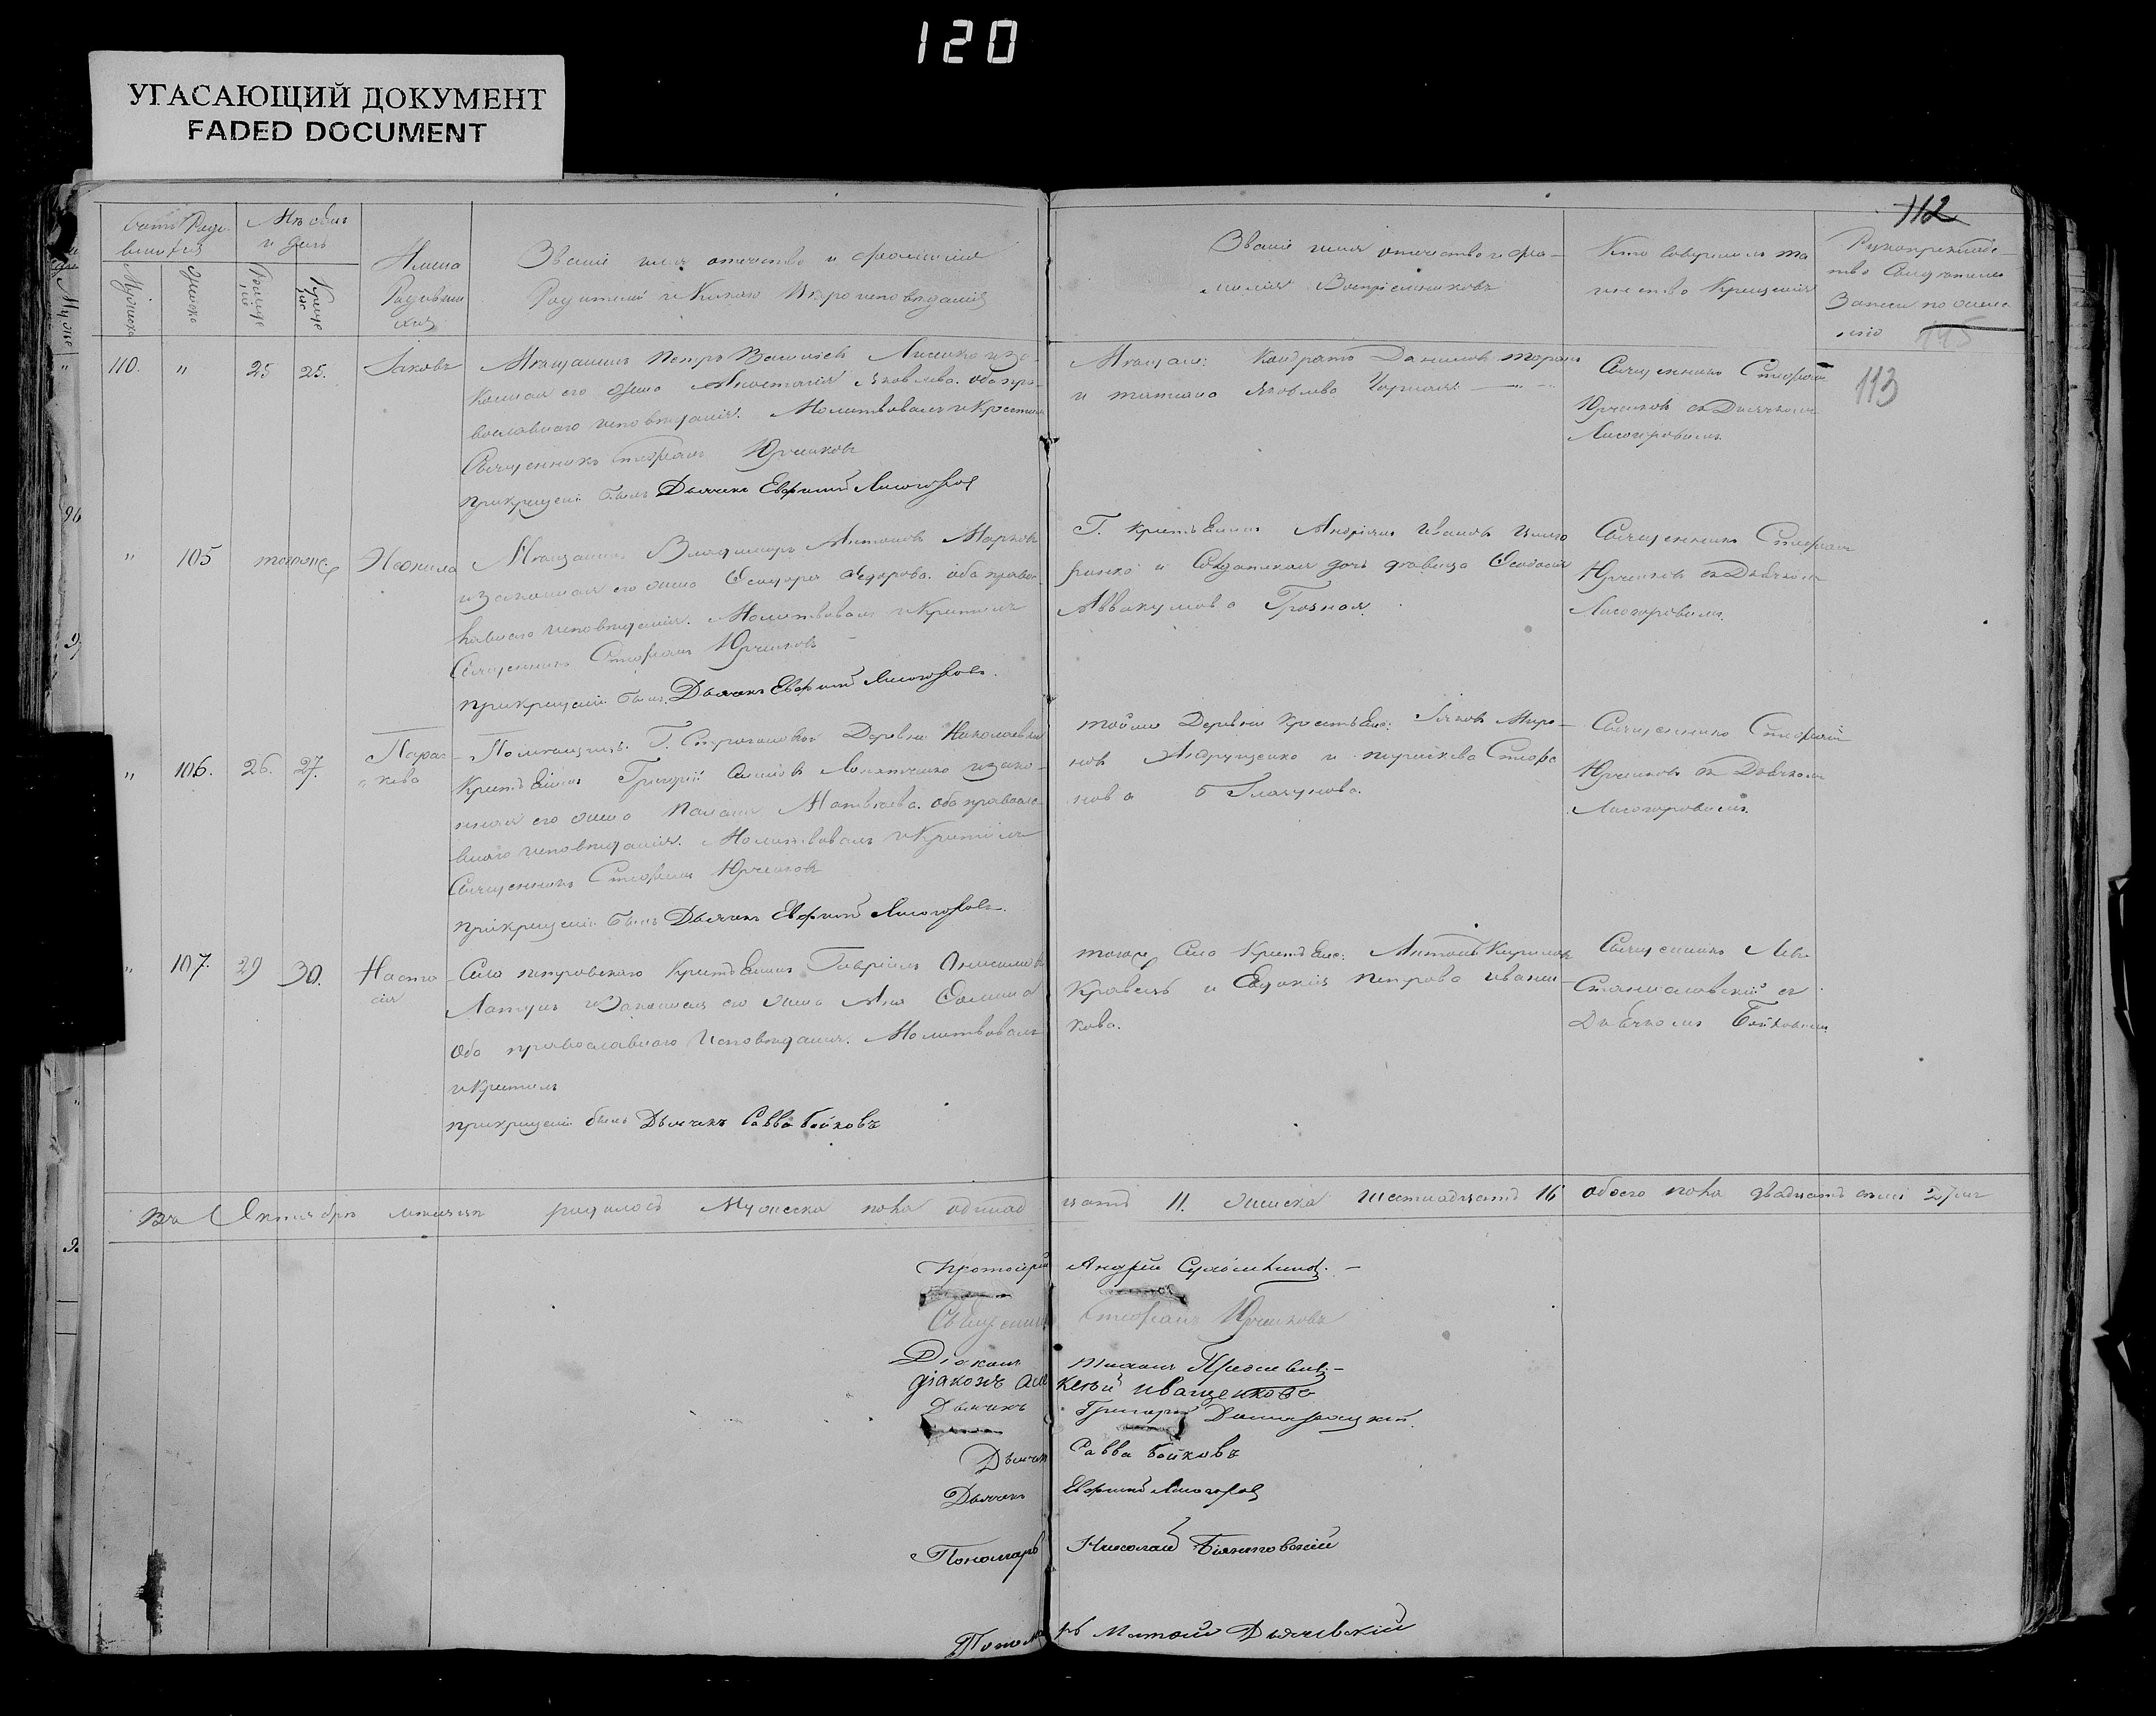 120
УГАСАЮЩИЙ ДОКУМЕНТ
FADED DOCUMENT
112
113
Счетъ Роди-
вшихся
Мѣсяцъ
и день
Мужеска
Женска
Рожде
нія
Креще
нія
Имена
Родивши
хся
Званіе имя отечество и фамилія
Родителей и Какого Вѣроисповѣданія
Званіе имя отечество и фа-
милія Воспріемниковъ
Кто совершилъ та
инство Крещенія
Рукоприкладс-
тво Свидѣтелей
Записи по жела
нію
110. " 25 25. Іаковъ
Мѣщанинъ Петръ Васильевъ Лисенко и за-
конная его жена Анастасія Яковлева. оба пра-
вославнаго исповѣданія. Молитвовалъ и Крестилъ
Священникъ Стефанъ Юрченковъ
При крещеніи былъ Дьячекъ Евфимій Лисогоровъ
Мѣщан: Кондратъ Даниловъ Таранъ
и татіана Яковлева Чорная
Священникъ Стефанъ
Юрченковъ съ Дьячкомъ
Лисогоровымъ.
" 105 тогоже. Неонила
Мѣщанинъ Владимиръ Антоновъ Марковъ
и Законная его жена Феодора Федорова. оба право-
славнаго исповѣданія. Молитвовалъ и Крестилъ
Священникъ Стефанъ Юрченковъ
При крещеніи былъ Дьячекъ Евфимій Лисогоровъ.
Г. крестьянинъ Андріянъ Ивановъ
и Солдатская дочь дѣвица Феодосія
Аввакумова Грозная.
Священникъ Стефанъ
Юрченковъ съ Дьячкомъ
Лисогоровымъ.
" 106. 26. 27. Парас-
кева
Помѣщицы Г. Деревни Николаевки
Крестьянинъ Григорій и закон-
ная его жена Матвѣева. оба правосла-
внаго исповѣданія. Молитвовалъ и Крестилъ
Священникъ Стефанъ Юрченковъ
При крещеніи былъ Дьячекъ Евфимій Лисогоровъ.
тойже Деревни Крестьяне: Іаковъ Миро-
новъ Андрущенко и параскева Стефа
нова Глазунова.
Священникъ Стефанъ
Юрченковъ съ Дьячкомъ
Лисогоровымъ.
" 107. 29 30. Настa
сія
Села петровскаго Крестьянинъ Гавріилъ Онисимовъ
и Законная его жена Анна Фомина
Оба православнаго Исповѣданія. Молитвовалъ
и Крестилъ
при крещеніи былъ Дьячекъ Савва Бойковъ
тогоже Села Крестьяне: Антонъ Кириловъ
Кравецъ и Евдокія Петрова Ивани-
кова.
Священникъ Левъ
Станиславскій съ
Дьячкомъ Бойковымъ
Въ Октябрѣ мѣсяцѣ родилось Мужеска пола одинад цать 11. женска шестнадцать 16 обоего пола двадцать семь 27мь
Протоіерей Андрей
Священникъ Стефанъ Юрченковъ
Діаконъ
діаконъ Алексѣй Иващенковъ
Дьячекъ Григорій
Дьячекъ Савва Бойковъ
Дьячекъ Евфимій Лисогоровъ
Пономарь Николай
Пономарь